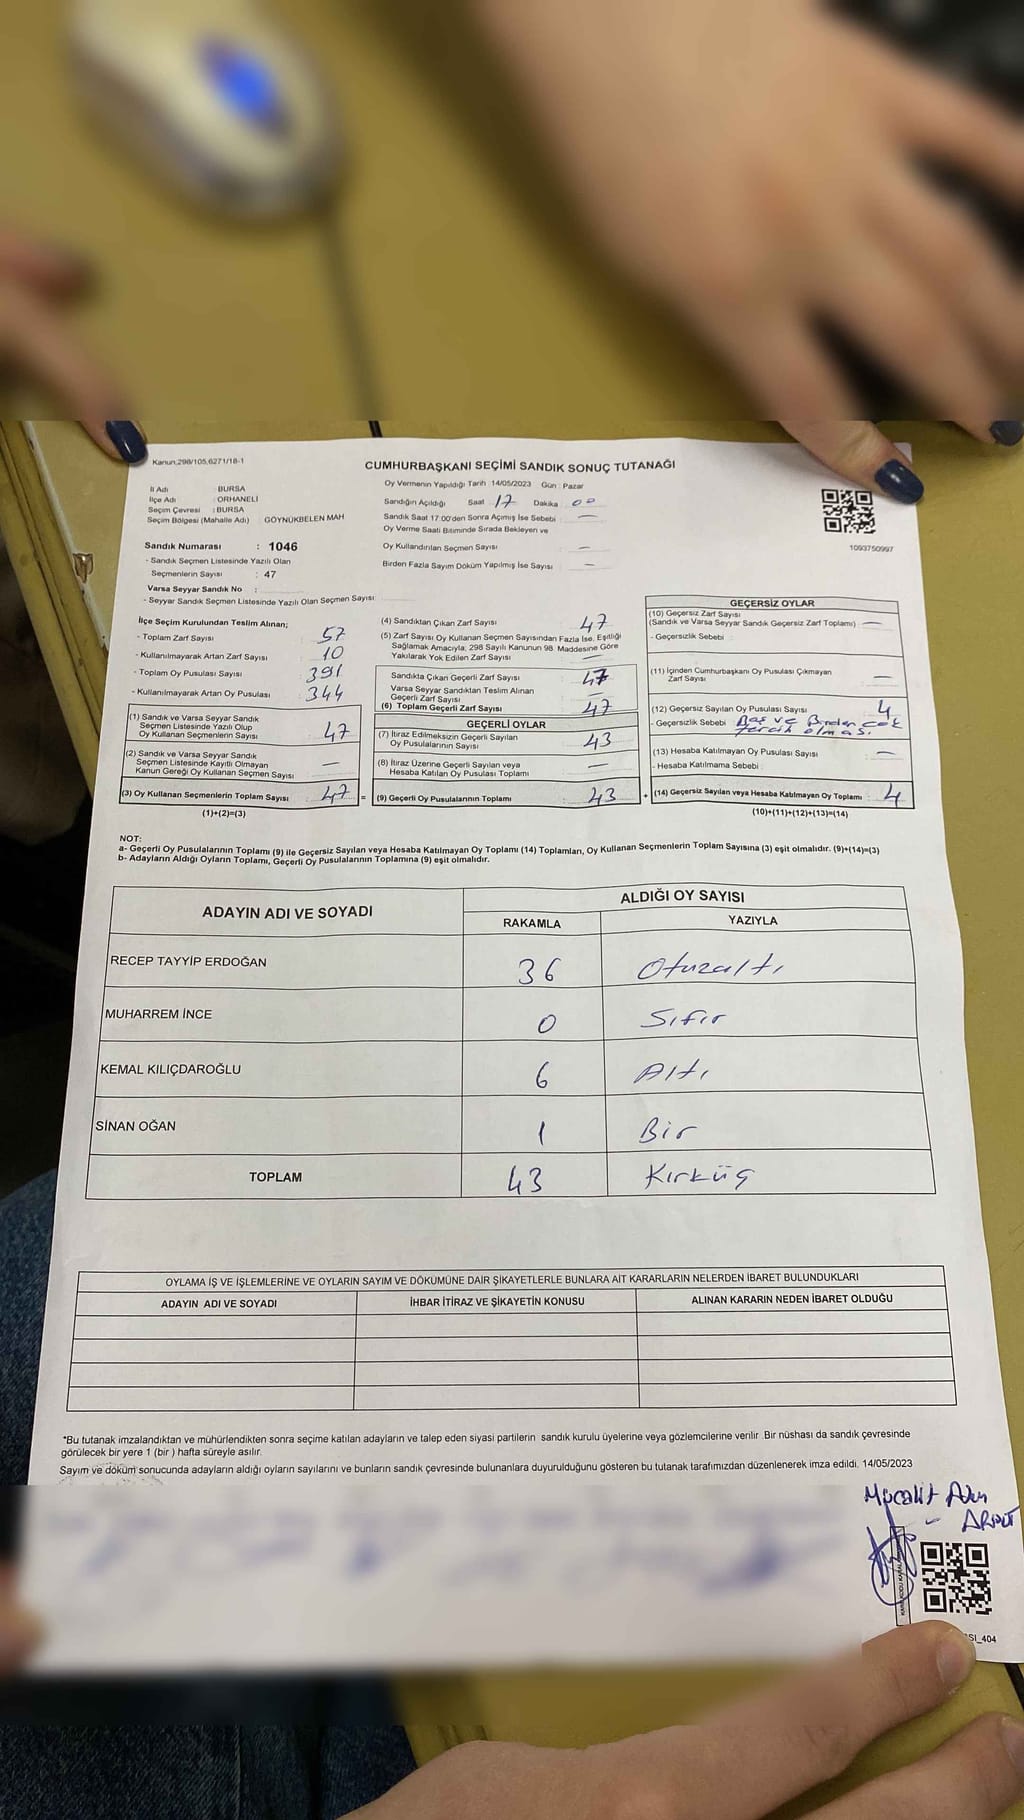 Kanun;298/105,6271/18-1
CUMHURBAŞKANI SEÇİMİ SANDIK SONUÇ TUTANAĞI
İl Adı : BURSA
İlçe Adı : ORHANELİ
Seçim Çevresi : BURSA
Seçim Bölgesi (Mahalle Adı) GÖYNÜKBELEN MAH
Oy Vermenin Yapıldığı Tarih 14/05/2023 Gün : Pazar
Sandığın Açıldığı Saat 17 Dakika 00
Sandık Saat 17:00'den Sonra Açımış İse Sebebi —
Oy Verme Saati Bitiminde Sırada Bekleyen ve
Oy Kullandırılan Seçmen Sayısı —
Birden Fazla Sayım Döküm Yapılmış İse Sayısı —
1093750997
Sandık Numarası : 1046
- Sandık Seçmen Listesinde Yazılı Olan
Seçmenlerin Sayısı : 47
Varsa Seyyar Sandık No :
- Seyyar Sandık Seçmen Listesinde Yazılı Olan Seçmen Sayısı:
İlçe Seçim Kurulundan Teslim Alınan;
- Toplam Zarf Sayısı 57
- Kullanılmayarak Artan Zarf Sayısı 10
- Toplam Oy Pusulası Sayısı 391
- Kullanılmayarak Artan Oy Pusulası 344
(1) Sandık ve Varsa Seyyar Sandık
Seçmen Listesinde Yazılı Olup
Oy Kullanan Seçmenlerin Sayısı 47
(2) Sandık ve Varsa Seyyar Sandık
Seçmen Listesinde Kayıtlı Olmayan
Kanun Gereği Oy Kullanan Seçmen Sayısı —
(3) Oy Kullanan Seçmenlerin Toplam Sayısı : 47 =
(1)+(2)=(3)
(4) Sandıktan Çıkan Zarf Sayısı 47
(5) Zarf Sayısı Oy Kullanan Seçmen Sayısından Fazla İse, Eşitliği
Sağlamak Amacıyla; 298 Sayılı Kanunun 98. Maddesine Göre
Yakılarak Yok Edilen Zarf Sayısı —
Sandıkta Çıkan Geçerli Zarf Sayısı 47
Varsa Seyyar Sandıktan Teslim Alınan
Geçerli Zarf Sayısı —
(6) Toplam Geçerli Zarf Sayısı 47
GEÇERLİ OYLAR
(7) İtiraz Edilmeksizin Geçerli Sayılan
Oy Pusulalarının Sayısı 43
(8) İtiraz Üzerine Geçerli Sayılan veya
Hesaba Katılan Oy Pusulası Toplamı —
(9) Geçerli Oy Pusulalarının Toplamı : 43 +
GEÇERSİZ OYLAR
(10) Geçersiz Zarf Sayısı
(Sandık ve Varsa Seyyar Sandık Geçersiz Zarf Toplamı) —
- Geçersizlik Sebebi :
(11) İçinden Cumhurbaşkanı Oy Pusulası Çıkmayan
Zarf Sayısı —
(12) Geçersiz Sayılan Oy Pusulası Sayısı 4
- Geçersizlik Sebebi Boş ve Birden çok
tercih olması.
(13) Hesaba Katılmayan Oy Pusulası Sayısı —
- Hesaba Katılmama Sebebi :
(14) Geçersiz Sayılan veya Hesaba Katılmayan Oy Toplamı : 4
(10)+(11)+(12)+(13)=(14)
NOT:
a- Geçerli Oy Pusulalarının Toplamı (9) ile Geçersiz Sayılan veya Hesaba Katılmayan Oy Toplamı (14) Toplamları, Oy Kullanan Seçmenlerin Toplam Sayısına (3) eşit olmalıdır. (9)+(14)=(3)
b- Adayların Aldığı Oyların Toplamı, Geçerli Oy Pusulalarının Toplamına (9) eşit olmalıdır.
ADAYIN ADI VE SOYADI ALDIĞI OY SAYISI
RAKAMLA YAZIYLA
RECEP TAYYİP ERDOĞAN 36 Otuzaltı
MUHARREM İNCE 0 Sıfır
KEMAL KILIÇDAROĞLU 6 Altı
SİNAN OĞAN 1 Bir
TOPLAM 43 Kırküç
OYLAMA İŞ VE İŞLEMLERİNE VE OYLARIN SAYIM VE DÖKÜMÜNE DAİR ŞİKAYETLERLE BUNLARA AİT KARARLARIN NELERDEN İBARET BULUNDUKLARI
ADAYIN ADI VE SOYADI İHBAR İTİRAZ VE ŞİKAYETİN KONUSU ALINAN KARARIN NEDEN İBARET OLDUĞU
*Bu tutanak imzalandıktan ve mühürlendikten sonra seçime katılan adayların ve talep eden siyasi partilerin sandık kurulu üyelerine veya gözlemcilerine verilir. Bir nüshası da sandık çevresinde
görülecek bir yere 1 (bir ) hafta süreyle asılır.
Sayım ve döküm sonucunda adayların aldığı oyların sayılarını ve bunların sandık çevresinde bulunanlara duyurulduğunu gösteren bu tutanak tarafımızdan düzenlenerek imza edildi. 14/05/2023
SI_404